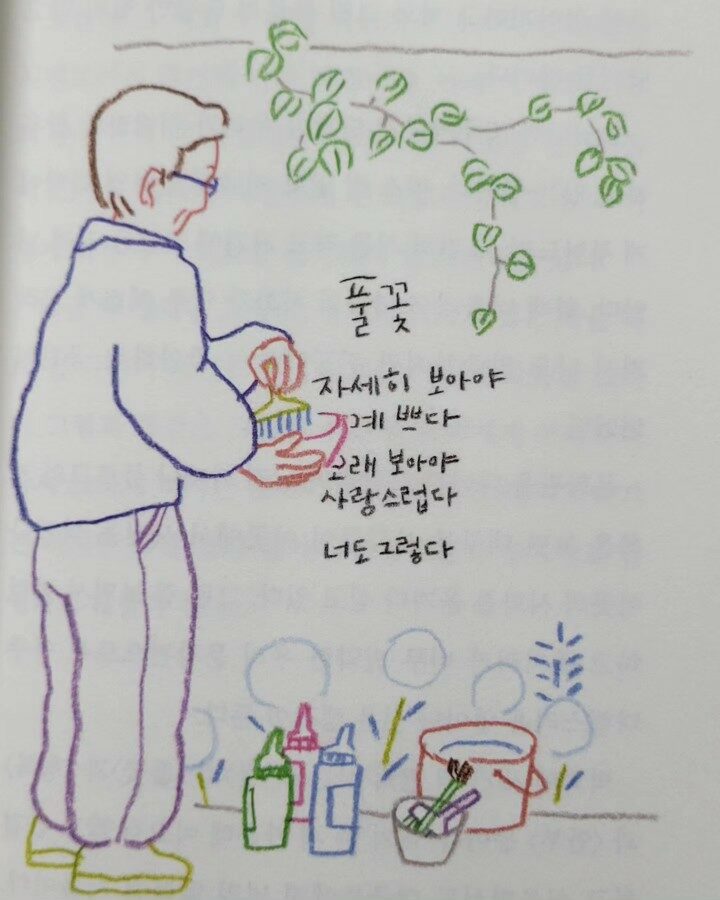 풀꽃
자세히 보아야
계쁘다
오래 보아야
사랑스럽다
너도 그렇다